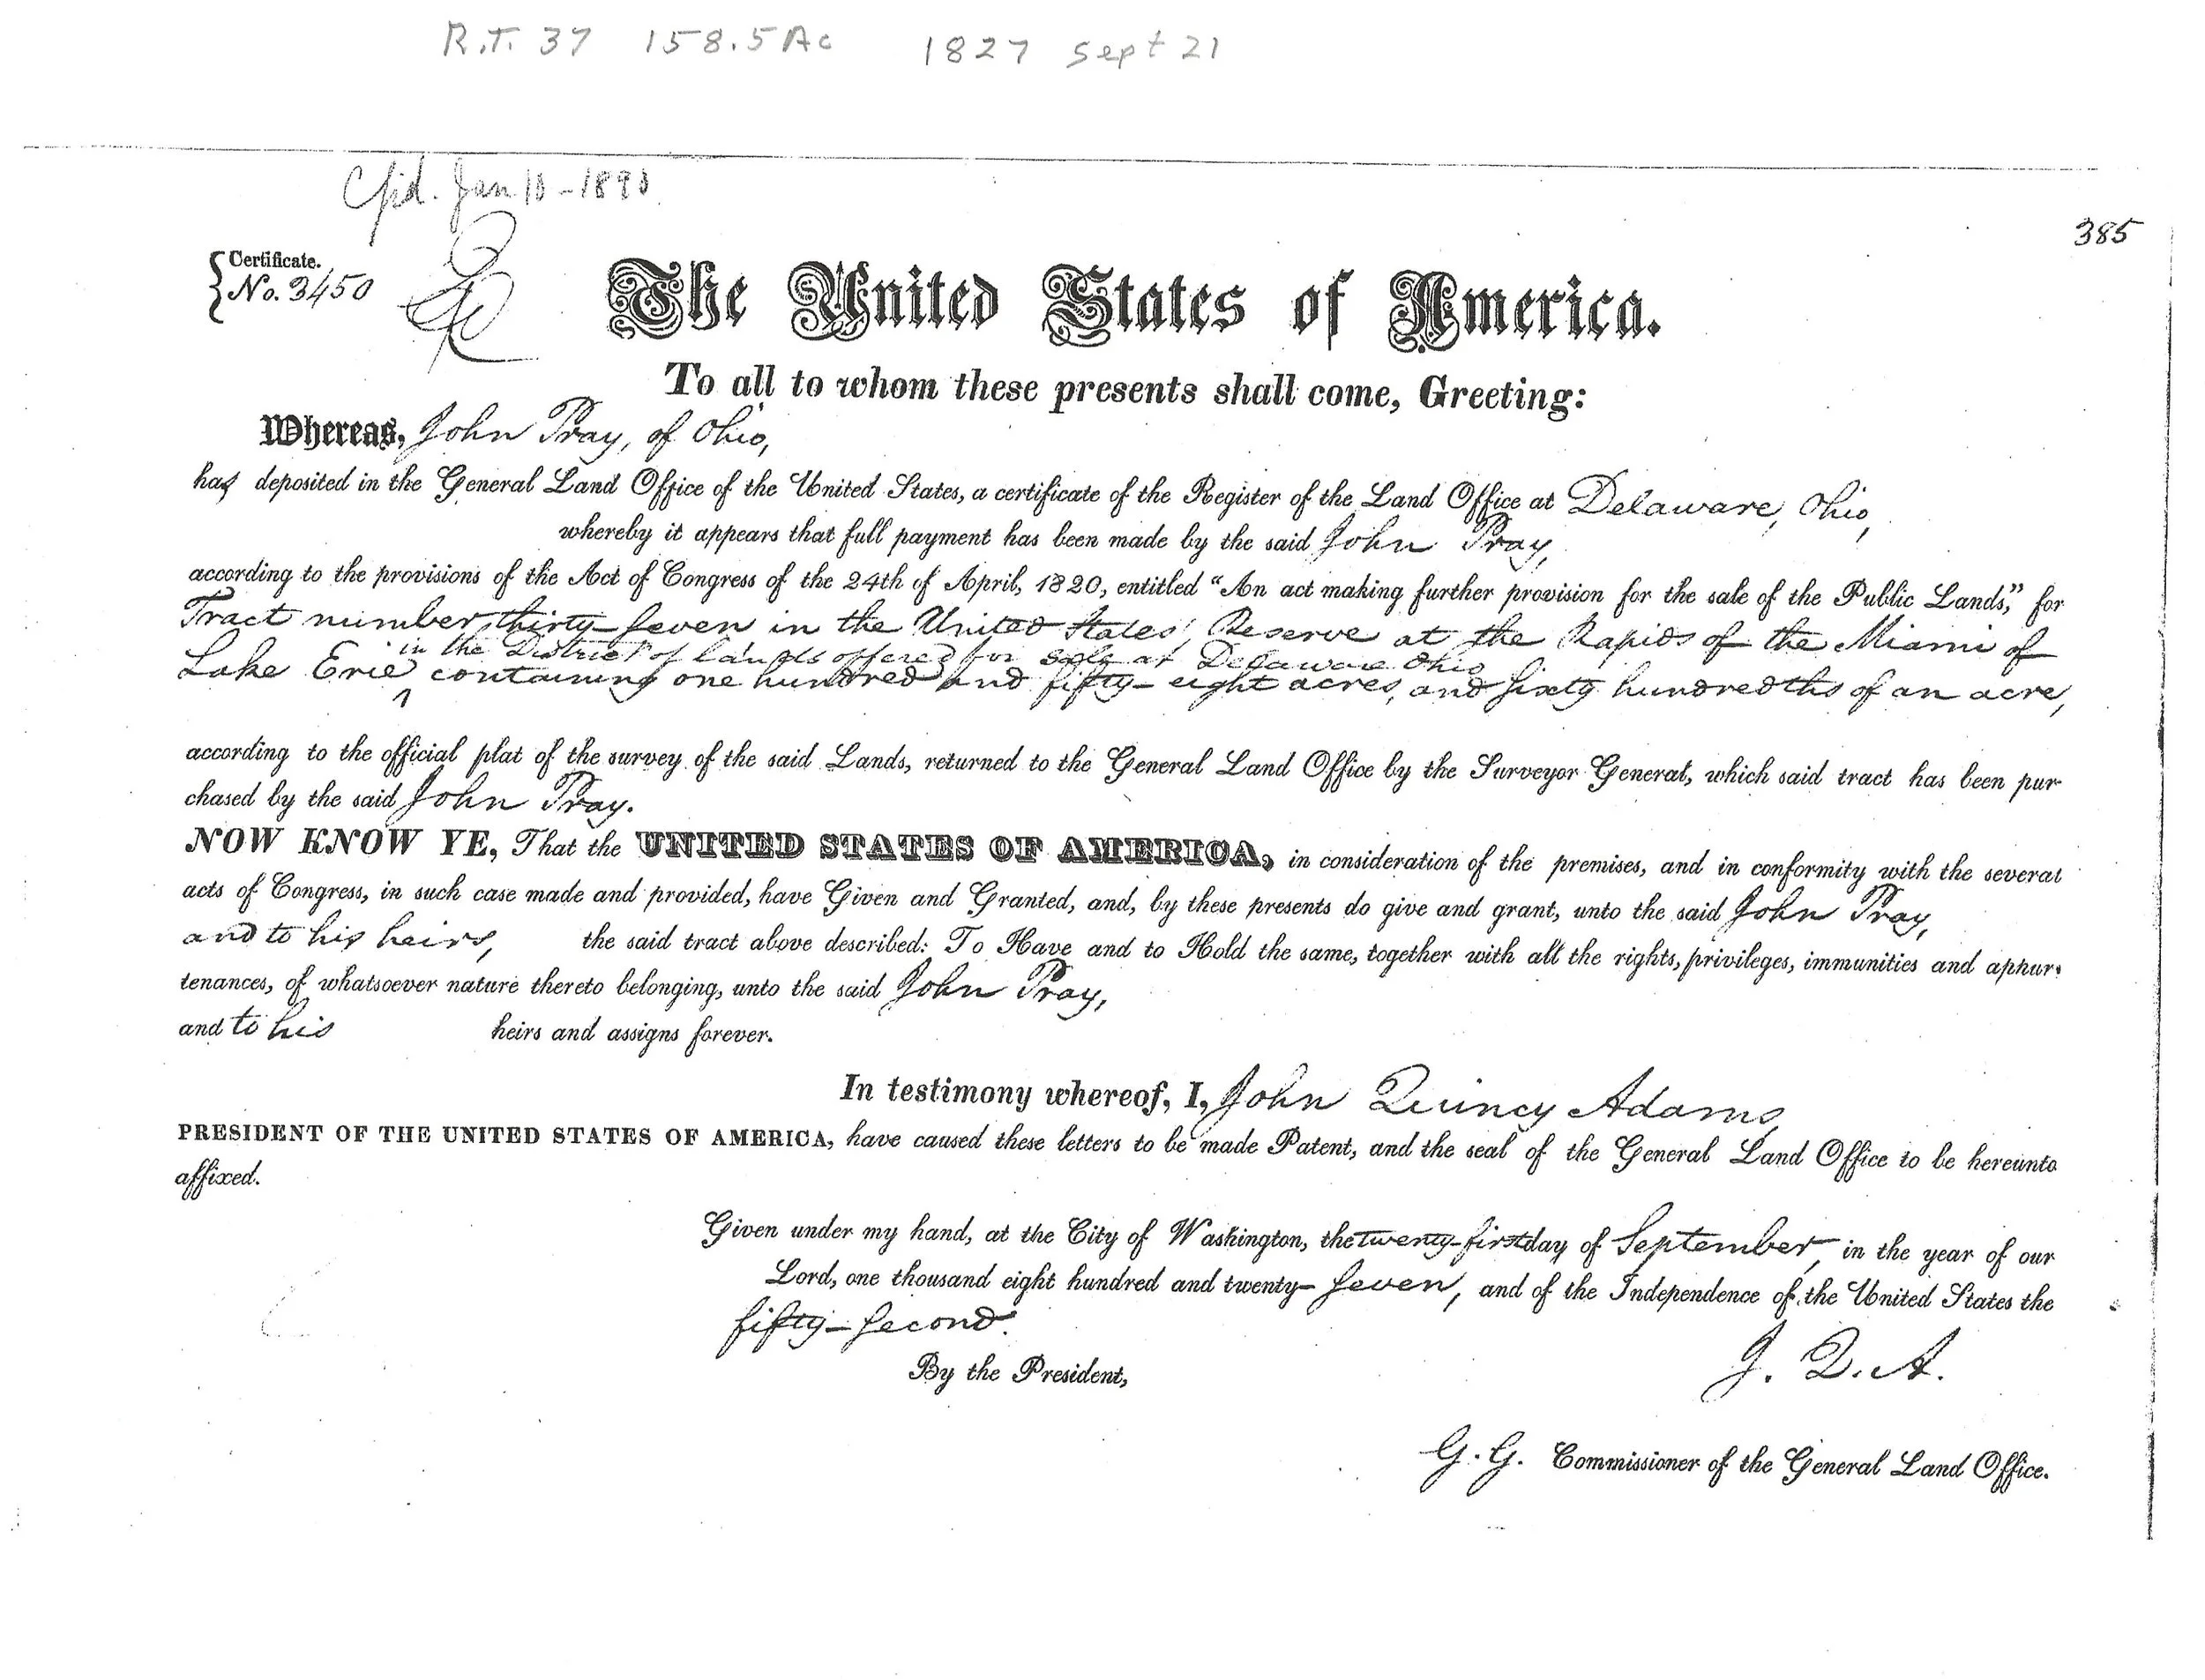 R.T. 37 158.5 Ac 1827 Sept 21
Jan 10 - 1890
385
Certificate.
No. 3450
The United States of America.
To all to whom these presents shall come, Greeting:
Whereas, John Pray, of Ohio,
has deposited in the General Land Office of the United States, a certificate of the Register of the Land Office at Delaware, Ohio,
whereby it appears that full payment has been made by the said John Pray,
according to the provisions of the Act of Congress of the 24th of April, 1820, entitled “An act making further provision for the sale of the Public Lands,” for
Tract number thirty-seven in the United States' Reserve at the Rapids of the Miami of
in the District of lands offered for sale at Delaware Ohio
Lake Erie containing one hundred and fifty-eight acres, and sixty hundredths of an acre,
according to the official plat of the survey of the said Lands, returned to the General Land Office by the Surveyor General, which said tract has been pur
chased by the said John Pray.
NOW KNOW YE, That the UNITED STATES OF AMERICA, in consideration of the premises, and in conformity with the several
acts of Congress, in such case made and provided, have Given and Granted, and, by these presents do give and grant, unto the said John Pray,
and to his heirs, the said tract above described: To Have and to Hold the same, together with all the rights, privileges, immunities and appur-
tenances, of whatsoever nature thereto belonging, unto the said John Pray,
and to his heirs and assigns forever.
In testimony whereof, I, John Quincy Adams,
PRESIDENT OF THE UNITED STATES OF AMERICA, have caused these letters to be made Patent, and the seal of the General Land Office to be hereunto
affixed.
Given under my hand, at the City of Washington, the twenty-first day of September, in the year of our
Lord, one thousand eight hundred and twenty-seven, and of the Independence of the United States the
fifty-second.
By the President,
J. Q. A.
G. G. Commissioner of the General Land Office.